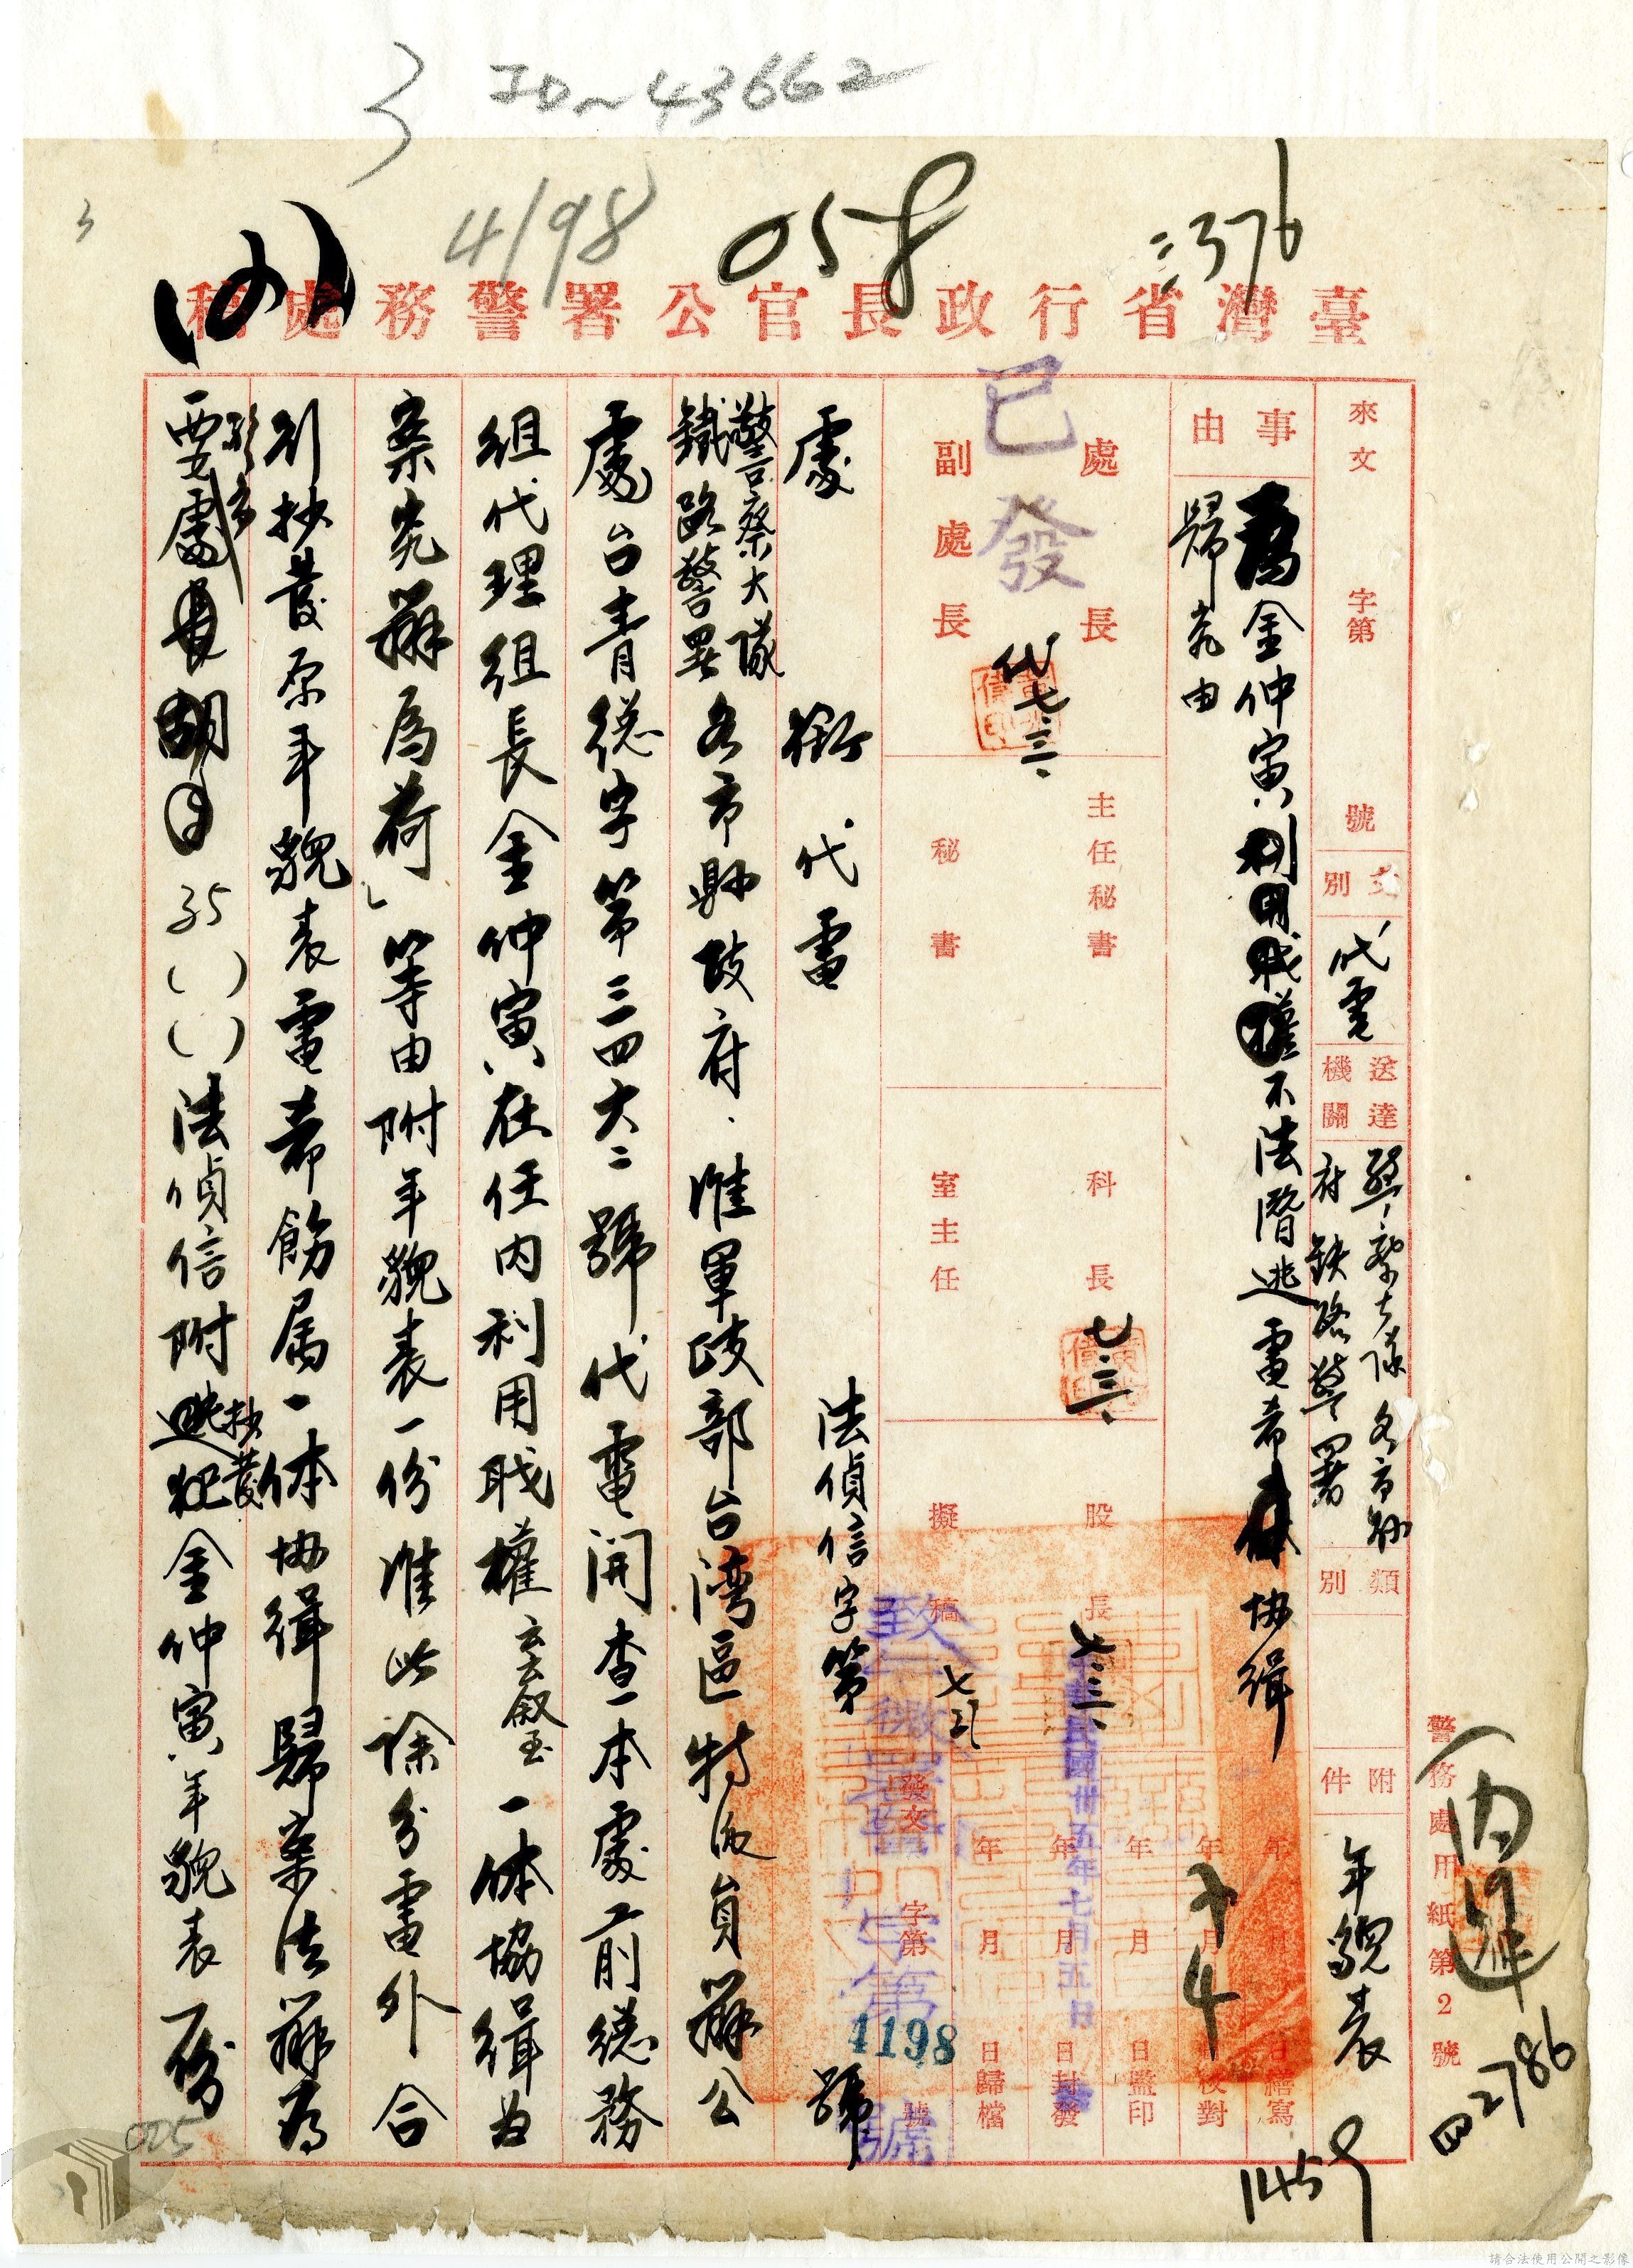 ID~43662
3
4198
058
376
臺灣省行政長官公署警務處稿
警務處用紙第2號
來文 字第 號
文別 代電
送達機關 警察大隊 各市縣府 鉄路警署
類別
附件 年貌表
事由
為金仲寅利用职權不法潛逃電希 协緝
歸案由
處長
副處長
已發
代 七.三.
主任秘書
秘書
科長 七.三.
室主任
股長 七.三.
擬稿
年 月 日繕寫
年 月 日校對
年 月 日監印
年 月 日封發
年 月 日歸檔
中華民國卅五年七月五日
發文 字第 4198 號
處銜代電 法偵信字第 號
警察大隊
鐵路警署
各市縣政府.准軍政部台湾區特派員辦公
處台青總字第三四六二號代電開查本處前總務
組代理組長金仲寅在任内利用职權 一体協緝為
案究辦為荷」等由附年貌表一份准此除分電外合
行抄發原年貌表電希飭属一体协緝歸案法辦為
要處長胡 35( )( )法偵信附抄發逃犯金仲寅年貌表一份
1459
2786
025
請合法使用公開之影像